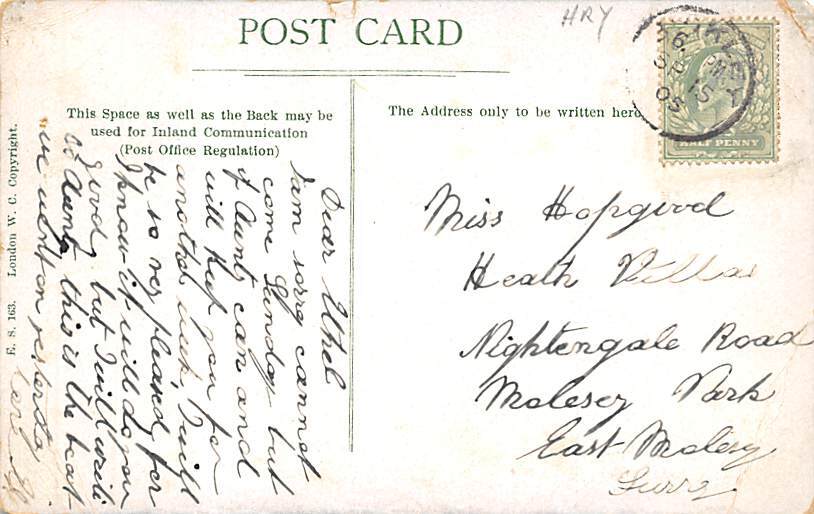 POST CARD
HRY
This Space as well as the Back may be
used for Inland Communication
(Post Office Regulation)
The Address only to be written here
HALF PENNY
E. S. 163. London W. C. Copyright.
Dear Ethel
I am sorry cannot
come Sunday but
if Aunt can and
will keep you for
another week, I will
be so very pleased, for
I know it will do you
good, but I will write
to Aunt, this is the boat
we went on yesterday
Miss Hopgood
Heath Villas
Nightengale Road
Molesey Park
East Molesey
Surry